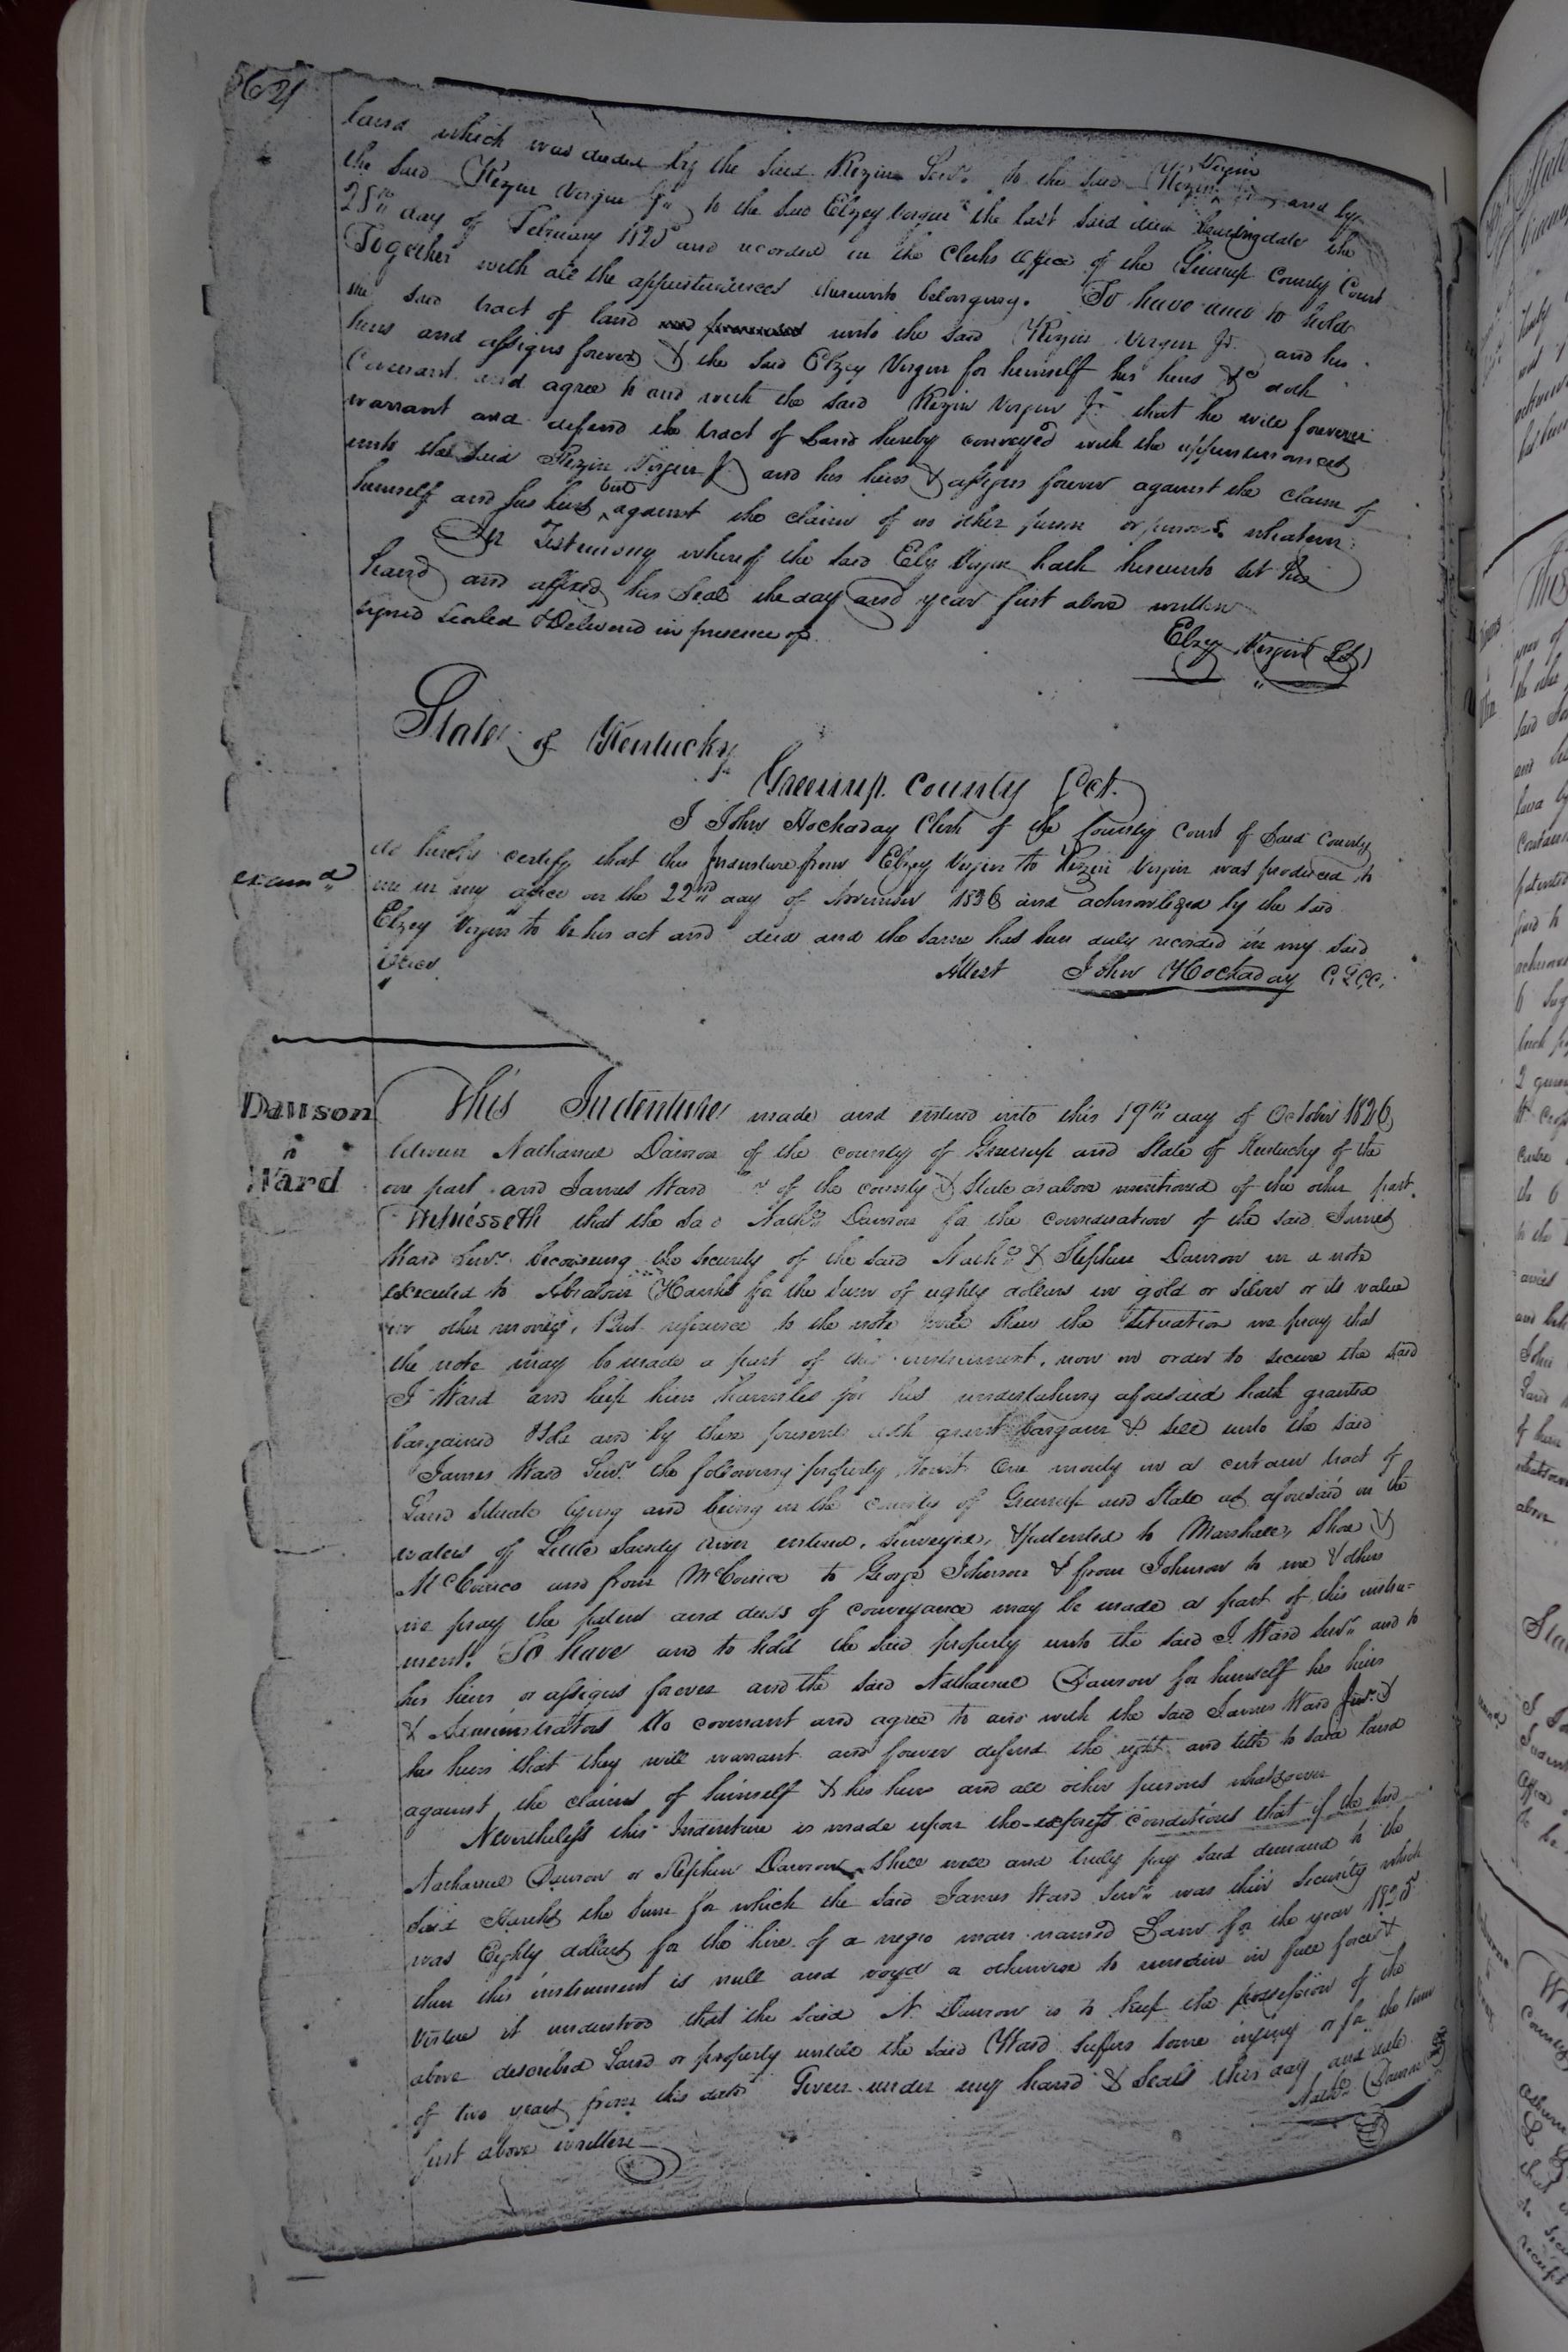 land which was deeded by the said Rezin Senr. to the said Rezin Virgin Jr. and by
the said Rezin Virgin Jr. to the said Elzey Virgin the last said deed bearing date the
25th day of February 1825 and recorded in the Clerks office of the Greenup County Court
Together with all the appurtenances thereunto belonging. To have and to hold
the said tract of land unto the said Rezin Virgin Jr. and his
heirs and assigns forever & the said Elzey Virgin for himself his heirs &c doth
Covenant and agree to and with the said Rezin Virgin Jr that he will forever
warrant and defend the tract of Land hereby conveyed with the appurtenances
unto the said Rezin Virgin Jr and his heirs & assigns forever against the claim of
himself and his heirs but against the claim of no other person or persons whatever
In Testimony whereof the said Elzy Virgin hath hereunto set his
hand and affixed his Seal the day and year first above written
signed sealed & Delivered in presence of
Elzey Virgin (LS)
State of Kentucky
Greenup County Sct.
I John Hockaday Clerk of the County Court of Said County
do hereby certify that this Indenture from Elzey Virgin to Rezin Virgin was produced to
examd
me in my office on the 22nd day of November 1826 and acknowledged by the said
Elzey Virgin to be his act and deed and the same has been duly recorded in my said
office
Attest John Hockaday C,G,C,C,
Dawson
Ward
This Indenture made and entered into this 19th day of October 1826
between Nathaniel Dawson of the county of Greenup and State of Kentucky of the
one part and James Ward of the county & State as above mentioned of the other part
Witnesseth that the said Nathl Dawson for the consideration of the said James
Ward Senr. becoming the security of the said Nathl & Stephen Dawson in a note
executed to for the Sum of eighty dollars in gold or silver or its value
in other money, But reference to the note will shew the situation we pray that
the note may be made a part of this instrument, now in order to secure the said
J Ward and keep him harmless for his undertaking aforesaid hath granted
bargained & sold and by these presents doth grant bargain & sell unto the said
James Ward Senr. the following property towit One moiety in a certain tract of
Land situate lying and being in the county of Greenup and State as aforesaid on the
waters of Little Sandy river entered, surveyed, & patented to Marshall, &
and from to George Johnson & from Johnson to me & others
we pray the patent and deeds of conveyance may be made a part of this instru=
ment. To have and to hold the said property unto the said J. Ward Senr and to
his heirs or assigns forever and the said Nathaniel Dawson for himself his heirs
& Administrators do covenant and agree to and with the said James Ward Senr. &
his heirs that they will warrant and forever defend the right and title to said land
against the claims of himself & his heirs and all other persons whatsoever
Nevertheless this Indenture is made upon the express conditions that if the said
Nathaniel Dawson or Stephen Dawson shall well and truly pay said demand to the
said the sum for which the said James Ward Senr was their security which
was Eighty dollars for the hire of a negro man named Sam for the year 1825
then this instrument is null and voyd or otherwise to remain in full force &
virtue it understood that the said N. Dawson is to keep the possession of the
above described Land or property untill the said Ward suffers some injury or for the term
of two years from this date Given under my hand & Seals this day and date
first above written
Nathl Dawson